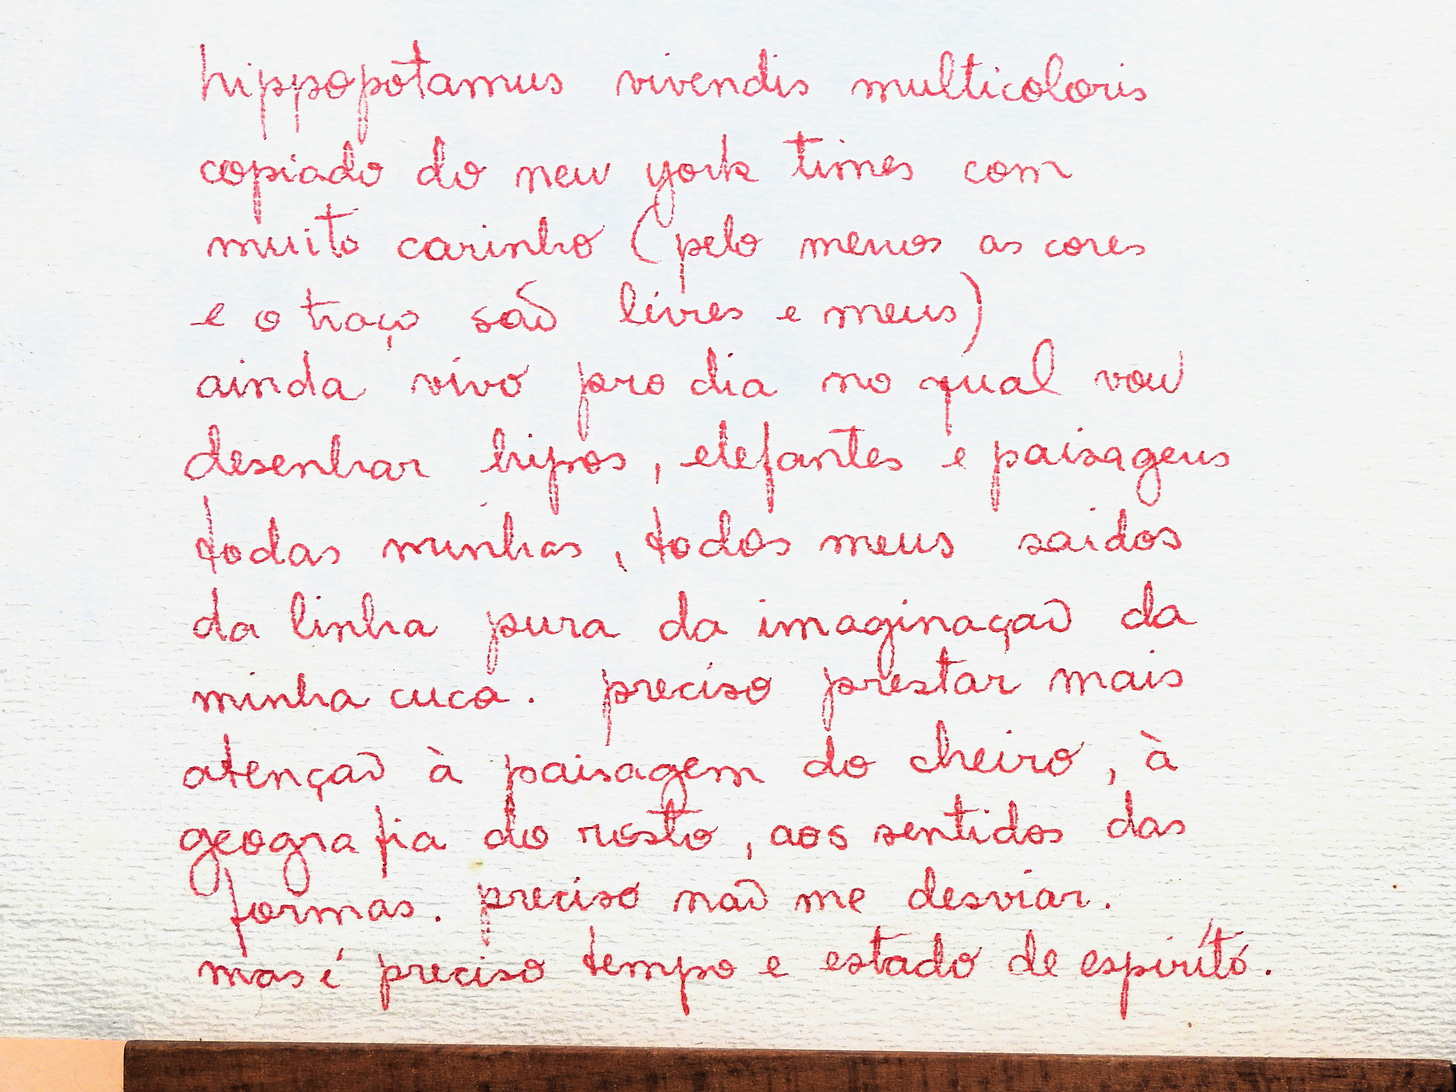 hippopotamus vivendis multicoloris
copiado do new york times com
muito carinho (pelo menos as cores
e o traço são livres e meus)
ainda vivo pro dia no qual vou
desenhar hipos, elefantes e paisagens
todas minhas, todos meus saidos
da linha pura da imaginação da
minha cuca. preciso prestar mais
atenção à paisagem do cheiro, à
geografia do rosto, aos sentidos das
formas. preciso não me desviar.
mas é preciso tempo e estado de espírito.